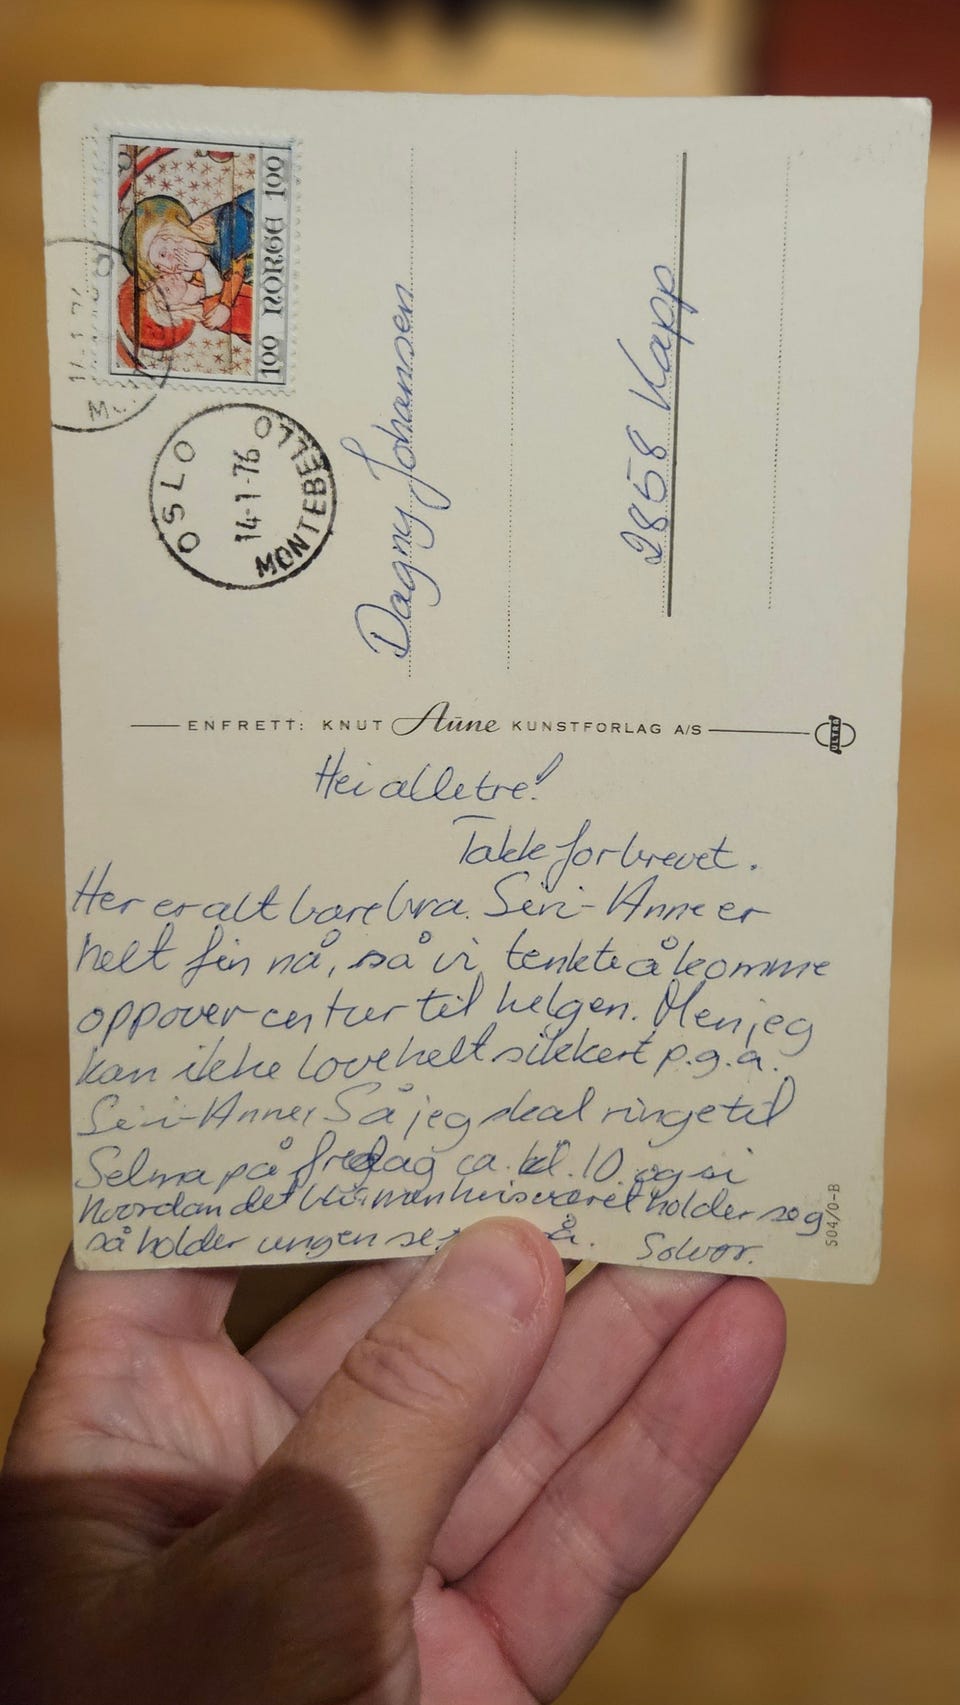 100 NORGE 100
OSLO
14-1-76
MONTEBELLO
Dagny Johansen
2858 Kapp
ENFRETT: KNUT Aune KUNSTFORLAG A/S
ULTRA
Hei alle tre!
Takk for brevet.
Her er alt bare bra. Siri-Anne er
helt fin nå, så vi tenkte å komme
oppover en tur til helgen. Men jeg
kan ikke love helt sikkert p.g.a.
Siri-Anne, Så jeg skal ringe til
Selma på fredag ca. kl. 10 og si
hvordan det blir, men hvis været holder seg
så holder ungen se
Solvor.
504/0-B